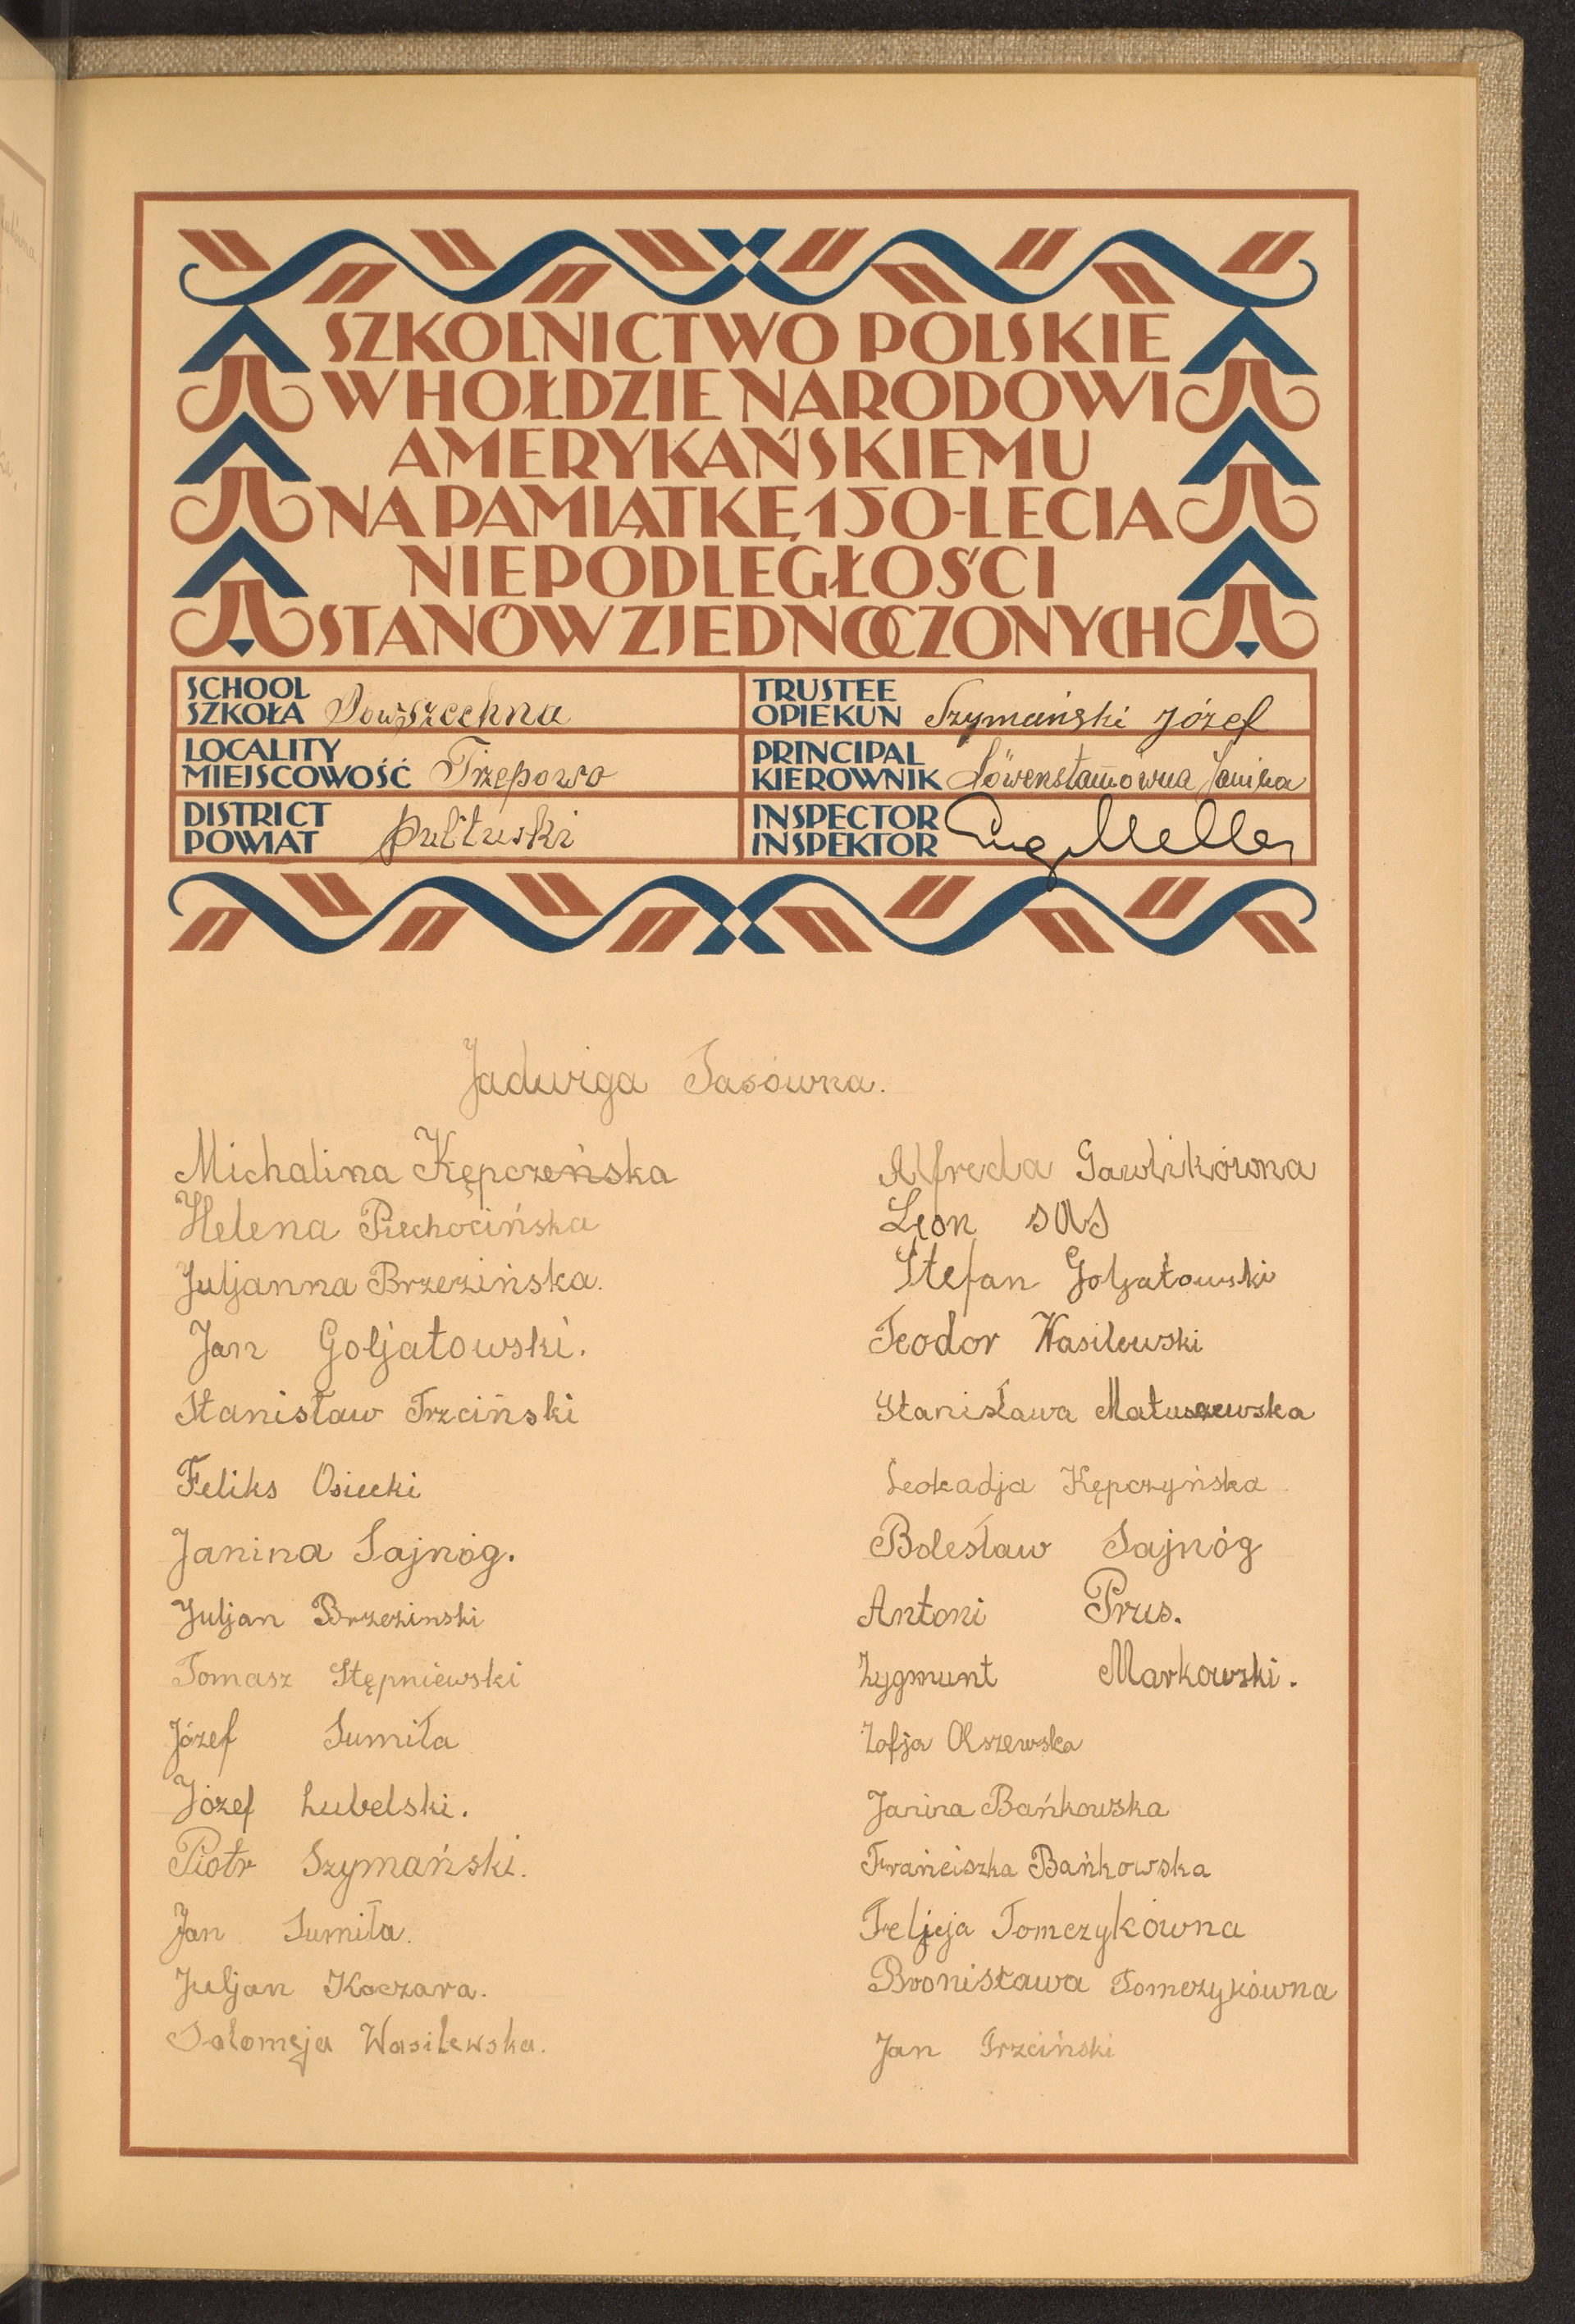 SZKOLNICTWO POLSKIE
W HOŁDZIE NARODOWI
AMERYKAŃSKIEMU
NA PAMIĄTKĘ 150-LECIA
NIEPODLEGŁOŚCI
STANÓW ZJEDNOCZONYCH
SCHOOL
SZKOŁA Powszechna
LOCALITY
MIEJSCOWOŚĆ Trzepowo
DISTRICT
POWIAT pułtuski
TRUSTEE
OPIEKUN Szymański Józef
PRINCIPAL
KIEROWNIK Löwenstamówna Janina
INSPECTOR
INSPEKTOR Eug. Meller
Jadwiga Sasówna.
Michalina Kępczeńska
Helena Piechocińska
Juljanna Brzezińska.
Jan Goljatowski.
Stanisław Trzciński
Feliks Osiecki
Janina Sajnóg.
Juljan Brzezinski
Tomasz Stępniewski
Józef Sumiła
Józef Lubelski.
Piotr Szymański.
Jan Sumiła.
Juljan Kaczara.
Salomeja Wasilewska.
Alfreda Gawlikówna
Leon SAS
Stefan Goljatowski
Teodor Wasilewski
Stanisława Matuszewska
Leokadja Kępczyńska
Bolesław Sajnóg
Antoni Prus.
Zygmunt Markowski.
Zofja Olszewska
Janina Bańkowska
Franciszka Bańkowska
Felicja Tomczykówna
Bronisława Tomczykówna
Jan Trzciński